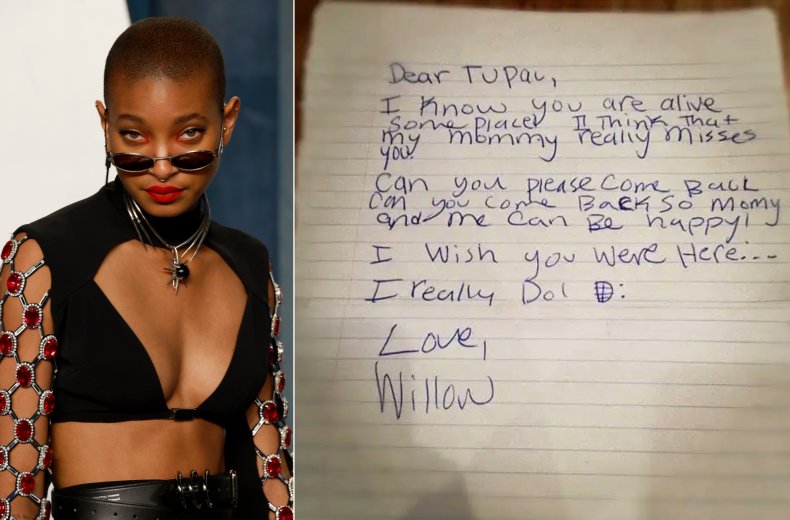 Dear Tupac,
I Know you are alive
some place. I Think That
my mommy really misses
you.
Can you please come Back
Can you come Back so Momy
and me can Be happy!
I wish you were Here....
I really Do!
Love,
Willow